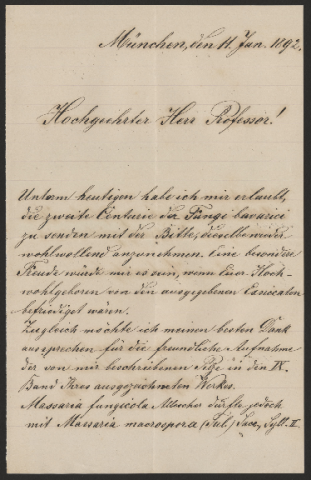 München, den 11. Jan. 1892.
Hochgeehrter Herr Professor!
Unterm heutigen habe ich mir erlaubt,
die zweite Centurie der Fungi bavarici
zu senden mit der Bitte, dieselbe wieder
wohlwollend anzunehmen. Eine besondere
Freude würde mir es sein, wenn Euer Hoch-
wohlgeboren von den ausgegebenen Exsiccaten
befriediget wären.
Zugleich möchte ich meinen besten Dank
aussprechen für die freundliche Aufnahme
der von mir beschriebenen Pilze in den IX.
Band Ihres ausgezeichneten Werkes.
Massaria fungicola Allescher dürfte jedoch
mit Massaria macrospora (Tul) Sacc, Syll. II